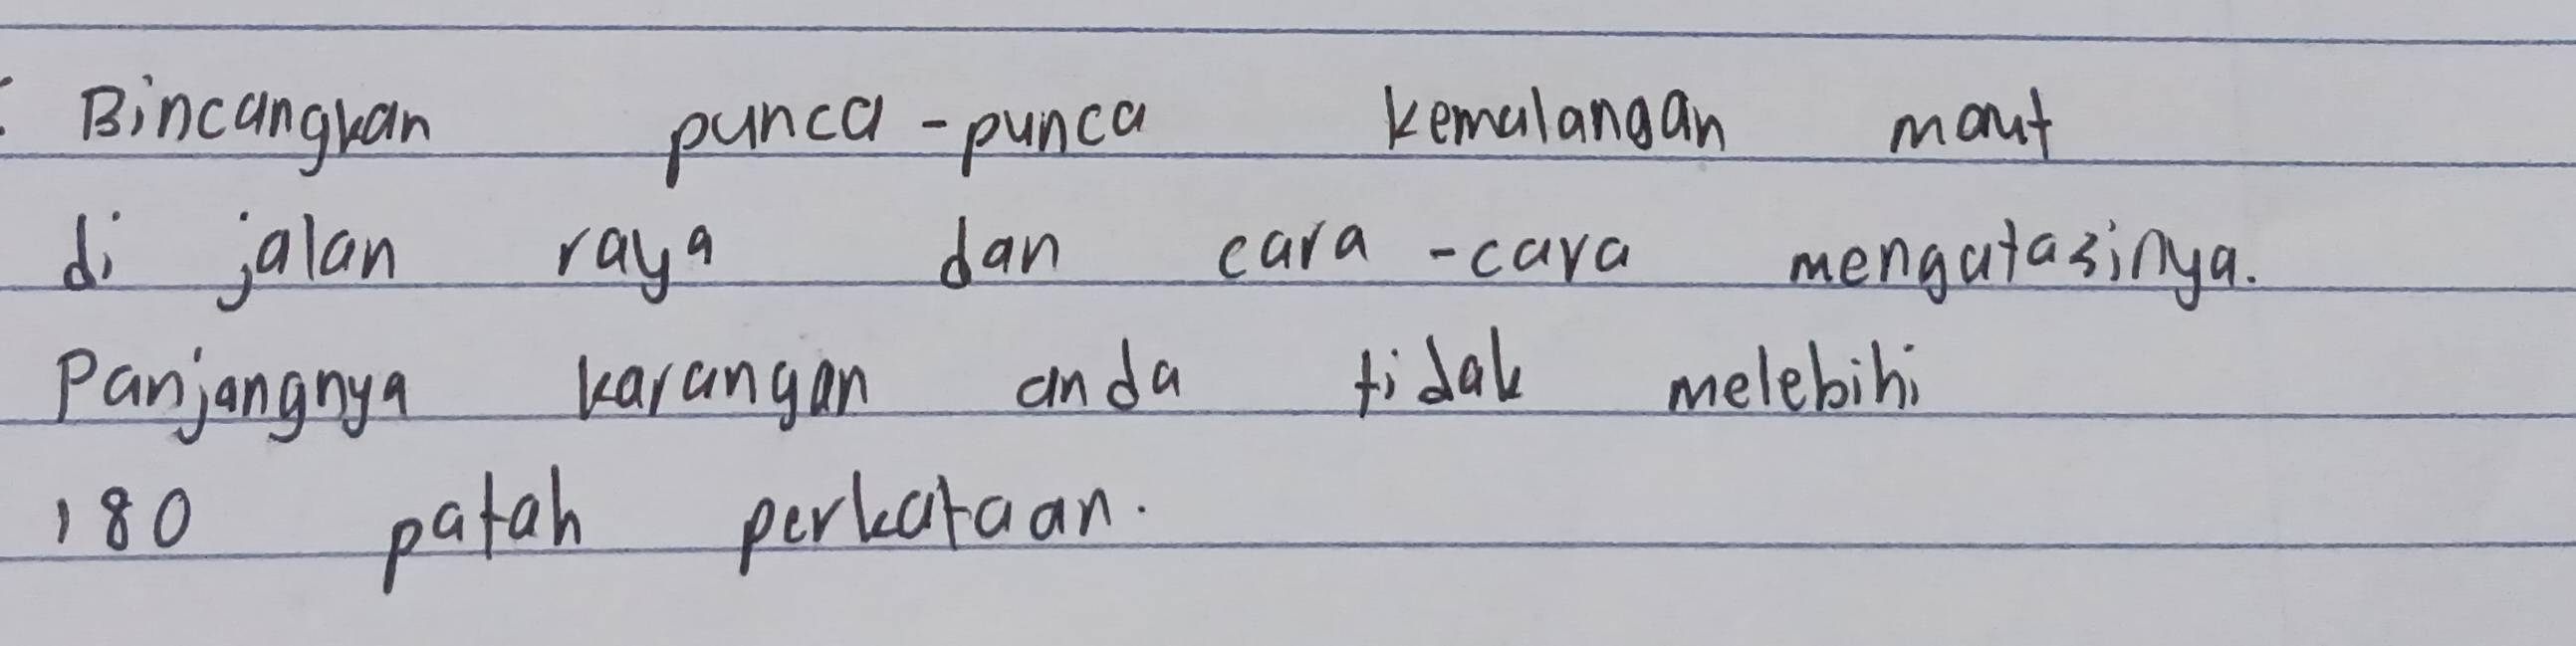 : Bincangkan punca-punca kemalangan maut
di jalan raya dan cara-cara mengatasinya.
Panjangnya karangan anda tidak melebihi
180 patah perkataan.